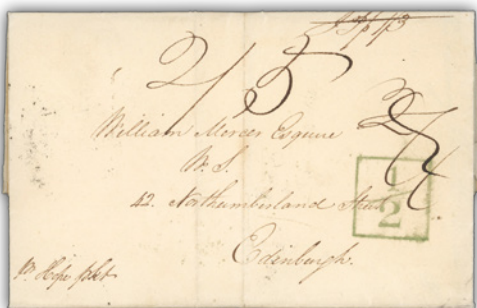 2/5
William Mercer Esquire
W. S.
42. Northumberland Street
1/2
Edinburgh.
pr Hope pkt